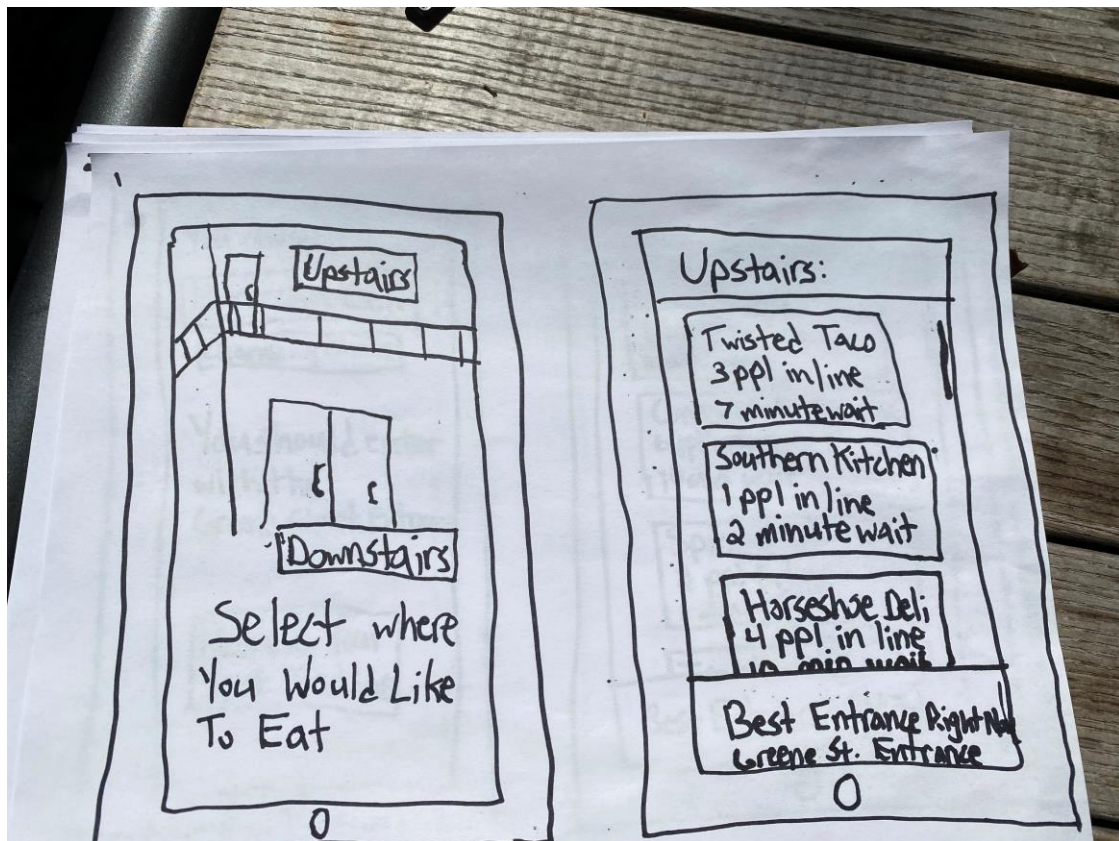 Upstairs
Downstairs
Select where
You Would Like
To Eat
Upstairs:
Twisted Taco
3 ppl in line
7 minute wait
Southern Kitchen
1 ppl in line
2 minute wait
Horseshoe Deli
4 ppl in line
10 min wait
Best Entrance Right Now
Greene St. Entrance